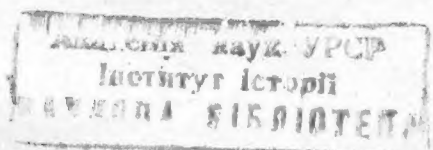 Академія наук УРСР
Інститут Історії
НАУКОВА БІБЛІОТЕКА